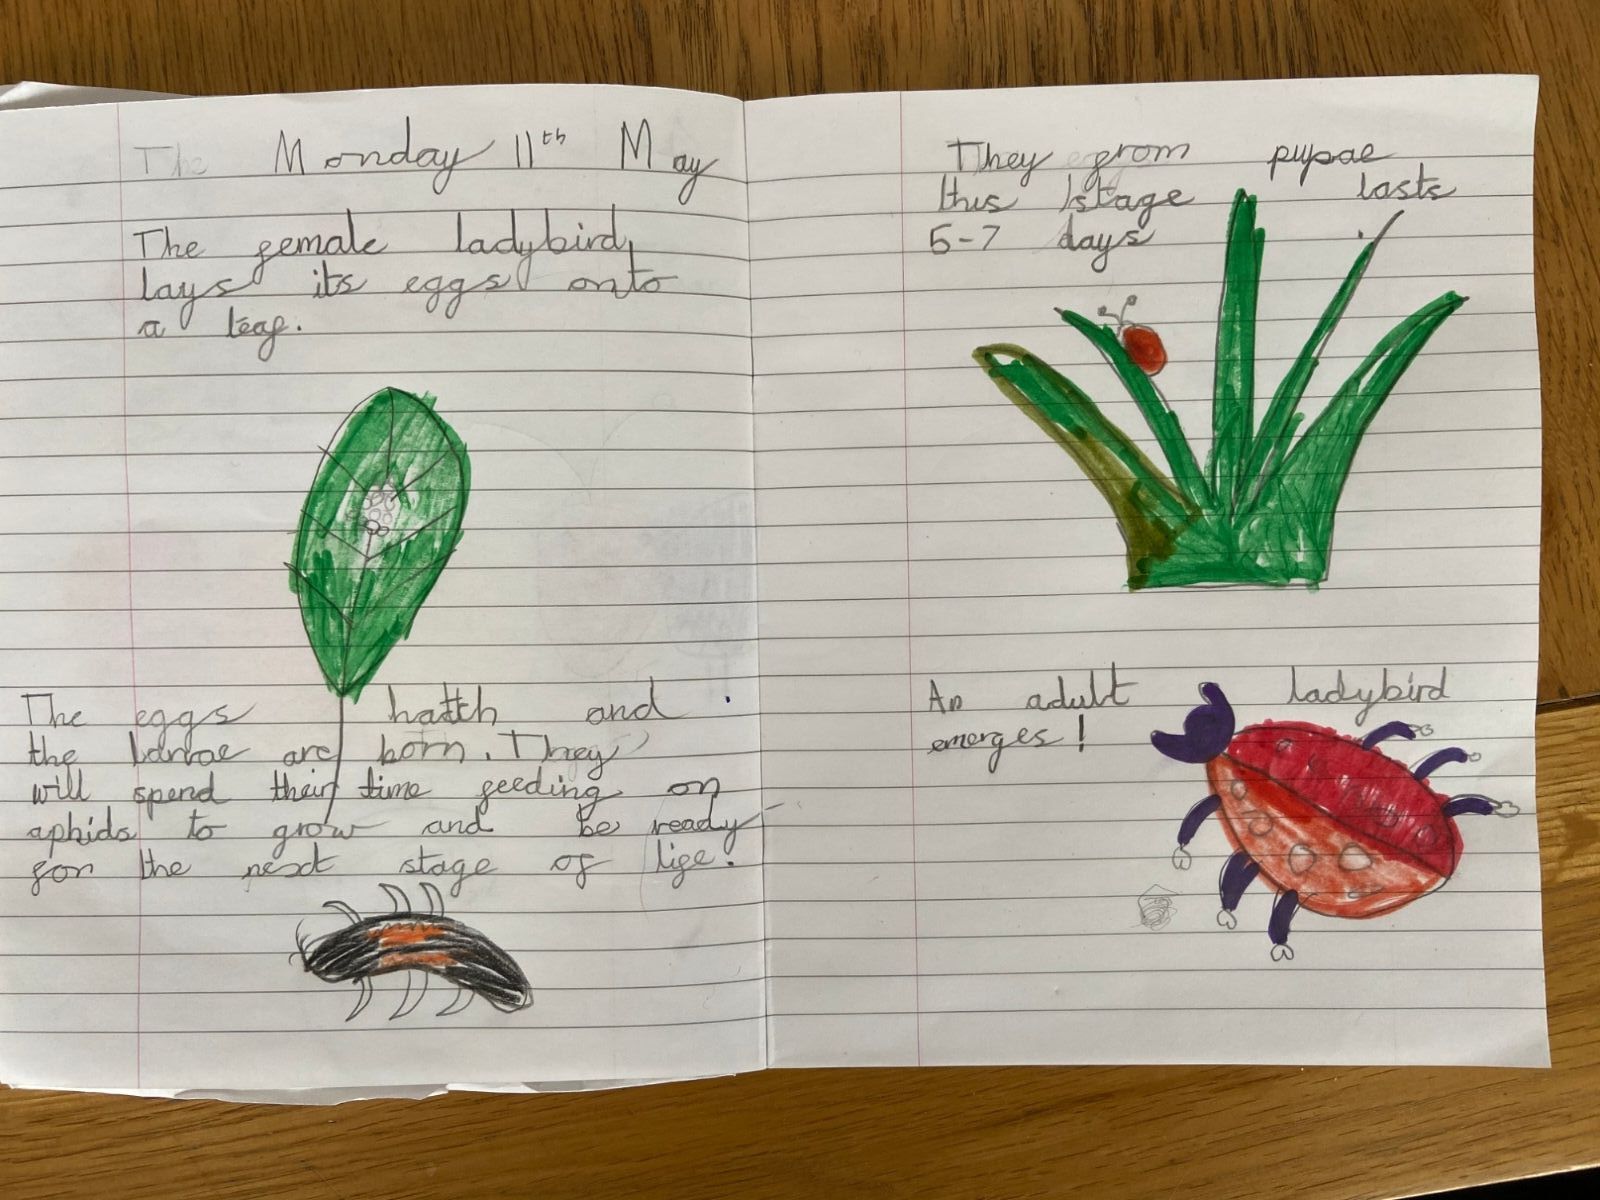 The Monday 11th May
The female ladybird
lays its eggs onto
a leaf.
The eggs hatch and
the larvae are born. They
will spend their time feeding on
aphids to grow and be ready
for the next stage of life.
They grom pupae
this stage lasts
5-7 days
An adult ladybird
emerges!